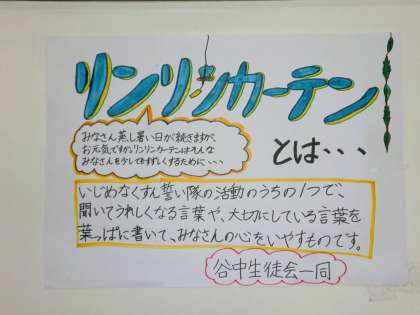 リンリンカーテン
とは・・・
みなさん蒸し暑い日が続きますが、
お元気ですか。リンリンカーテンはそんな
みなさんを少しでもすずしくするために・・・
いじめなくすん誓い隊の活動のうちの1つで、
聞いてうれしくなる言葉や、大切にしている言葉を
葉っぱに書いて、みなさんの心をいやすものです。
谷中生徒会一同